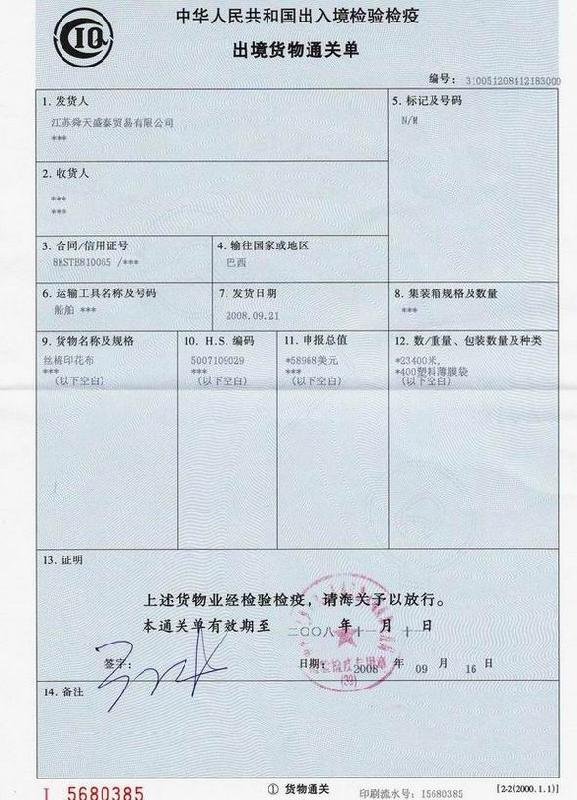 CIQ
中华人民共和国出入境检验检疫
出境货物通关单
编号: 310051208412183000
1. 发货人
江苏舜天盛泰贸易有限公司
***
5. 标记及号码
N/M
2. 收货人
***
***
3. 合同/信用证号
/***
4. 输往国家或地区
巴西
6. 运输工具名称及号码
船舶 ***
7. 发货日期
2008.09.21
8. 集装箱规格及数量
***
9. 货物名称及规格
丝棉印花布
***
(以下空白)
10. H.S. 编码
5007109029
***
(以下空白)
11. 申报总值
*58968美元
***
(以下空白)
12. 数/重量、包装数量及种类
*23400米,
*400塑料薄膜袋
(以下空白)
13. 证明
上述货物业经检验检疫，请海关予以放行。
本通关单有效期至 二〇〇八 年 十一 月 十一 日
签字:
日期: 2008 年 09 月 16 日
检验检疫专用章
(39)
14. 备注
I 5680385
① 货物通关
印刷流水号: I5680385
[2-2(2000.1.1)]